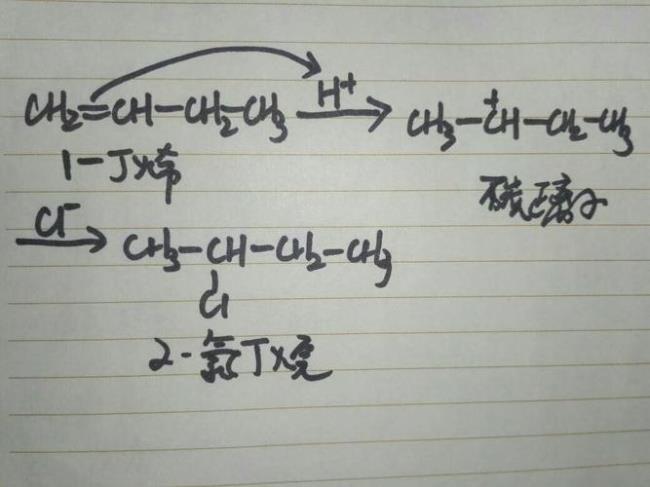 CH2=CH-CH2-CH3 H+ CH3-CH+-CH2-CH3
1-丁烯 碳正离子
Cl- CH3-CH-CH2-CH3
Cl
2-氯丁烷